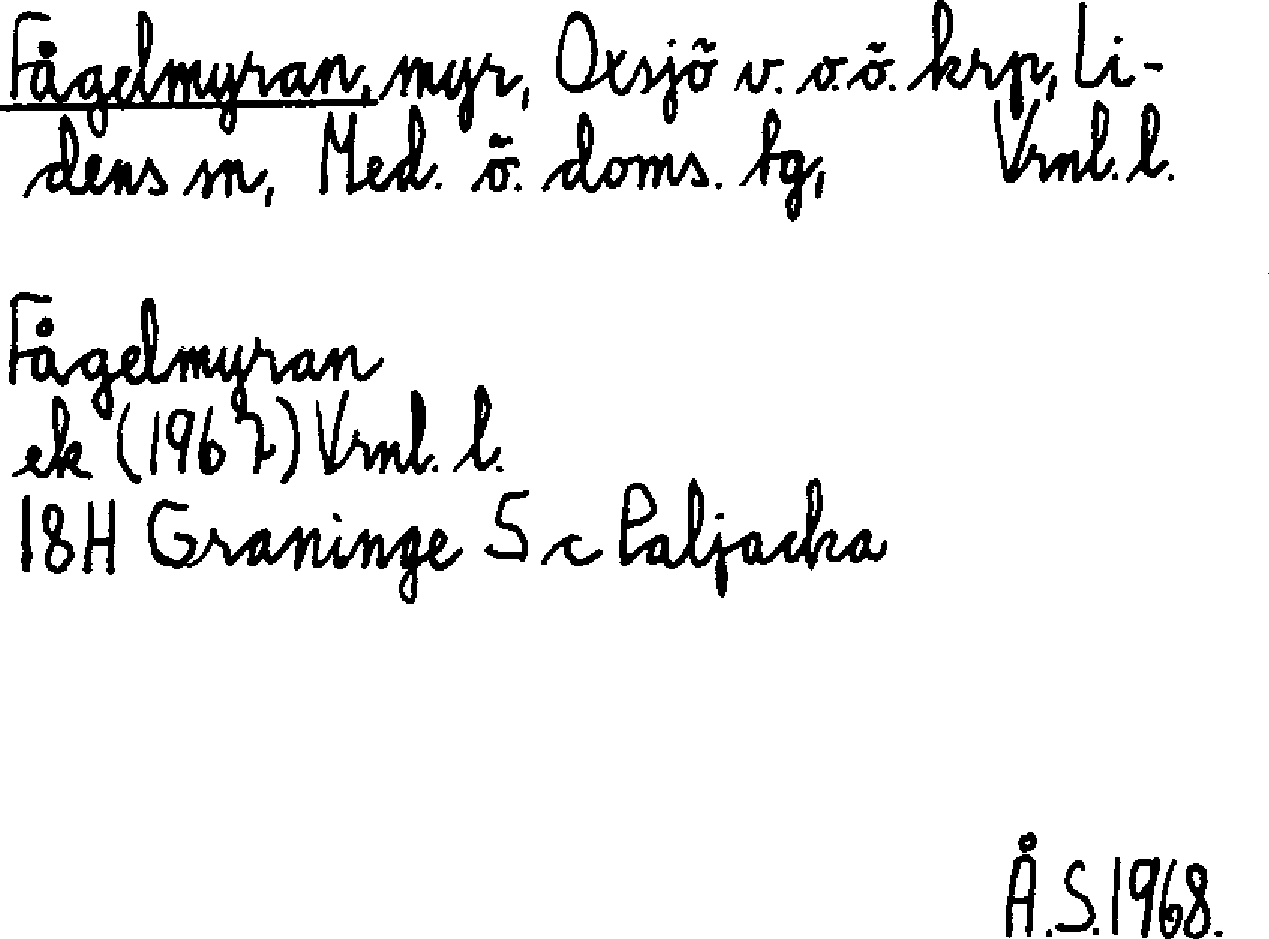 Fågelmyran, myr, Oxsjö v. o. ö. krp, Li-
dens sn, Med. ö. doms. tg, Vrnl. l.
Fågelmyran
ek (1967) Vrnl. l.
18H Graninge 5 c Paljacka
Å.S. 1968.